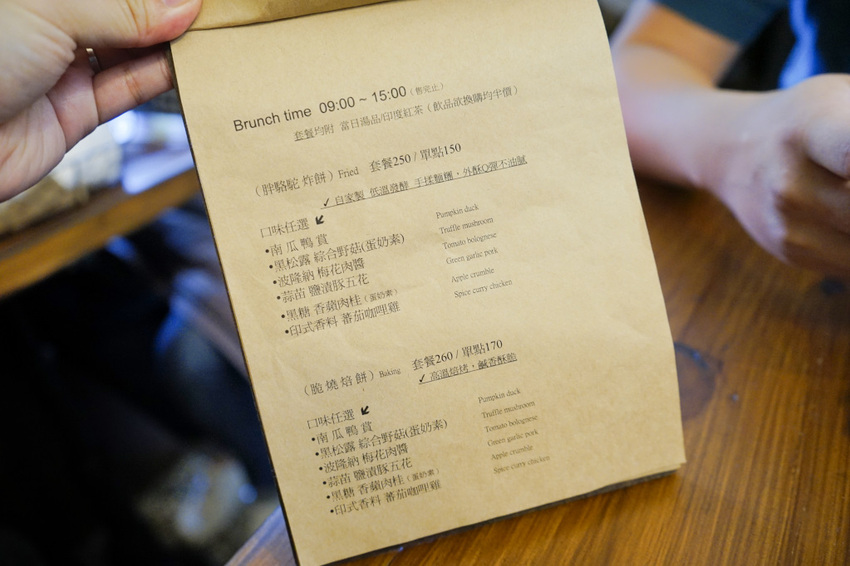 Brunch time 09:00 ~ 15:00 (售完止)
套餐均附 當日湯品/印度紅茶 (飲品欲換購均半價)
(胖駱駝 炸餅) Fried 套餐250 / 單點150
✓ 自家製 低溫發酵 手揉麵糰，外酥Q彈不油膩
口味任選 ↙
•南 瓜 鴨 賞 Pumpkin duck
•黑松露 綜合野菇(蛋奶素) Truffle mushroom
•波隆納 梅花肉醬 Tomato bolognese
•蒜苗 鹽漬豚五花 Green garlic pork
•黑糖 香蘋肉桂 (蛋奶素) Apple crumble
•印式香料 蕃茄咖哩雞 Spice curry chicken
(脆 燒 焙 餅) Baking 套餐260 / 單點170
✓ 高溫焙烤，鹹香酥脆
口味任選 ↙
•南 瓜 鴨 賞 Pumpkin duck
•黑松露 綜合野菇(蛋奶素) Truffle mushroom
•波隆納 梅花肉醬 Tomato bolognese
•蒜苗 鹽漬豚五花 Green garlic pork
•黑糖 香蘋肉桂 (蛋奶素) Apple crumble
•印式香料 蕃茄咖哩雞 Spice curry chicken